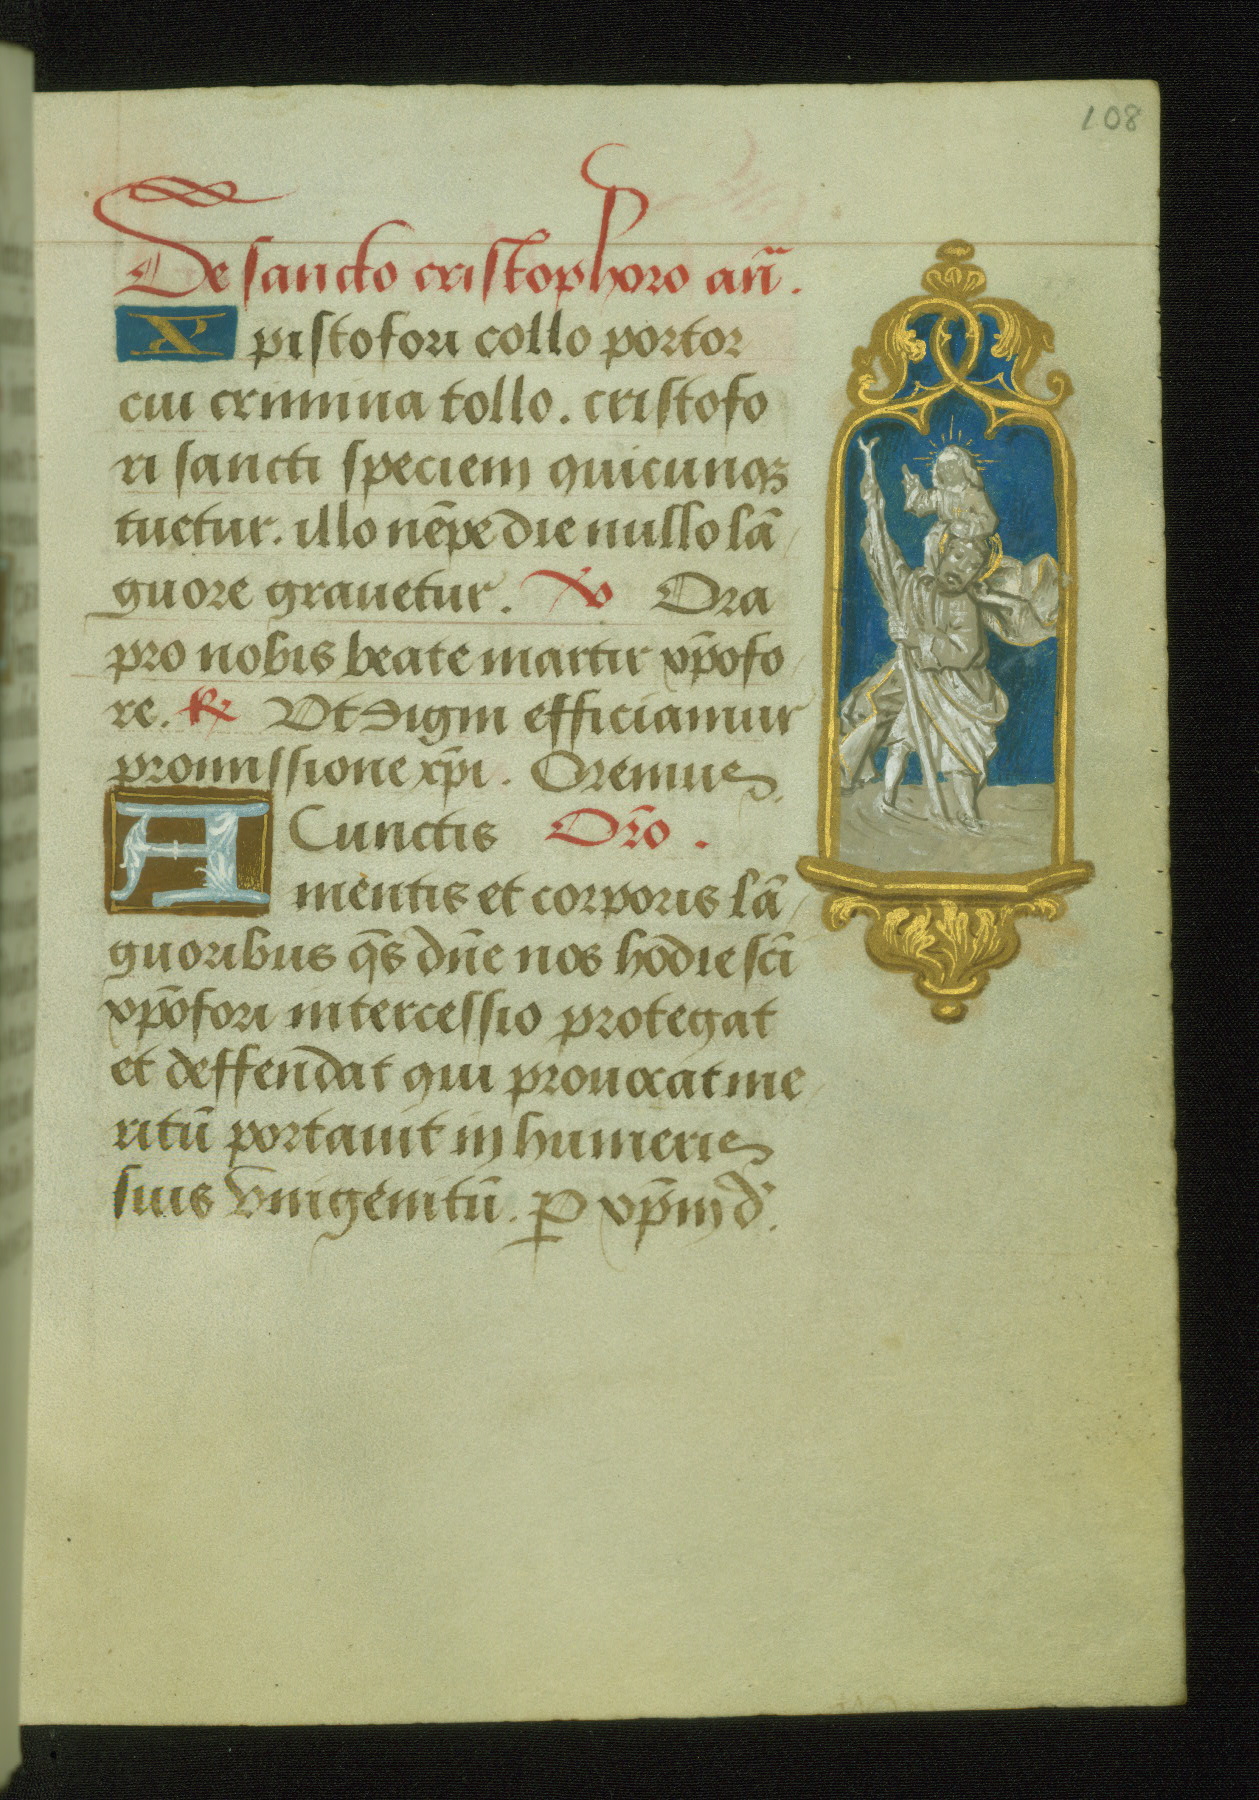 108
De sancto cristophoro an̄.
Xpistofori collo portor
cui crimina tollo. cristofo
ri sancti speciem quicunqꝫ
tuetur. illo nēpe die nullo lā
guore grauetur. V Ora
pro nobis beate martir xp̄ofo
re. R Vt digni efficiamur
promissione xp̄i. Oremus.
A Cunctis Or̄o.
mentis et corporis lā
guoribus q̄s dn̄e nos hodie sc̄i
xp̄ofori intercessio protegat
et deffendat qui prouocat me
ritū portauit in humeris
suis vnigenitū. P xp̄m d.